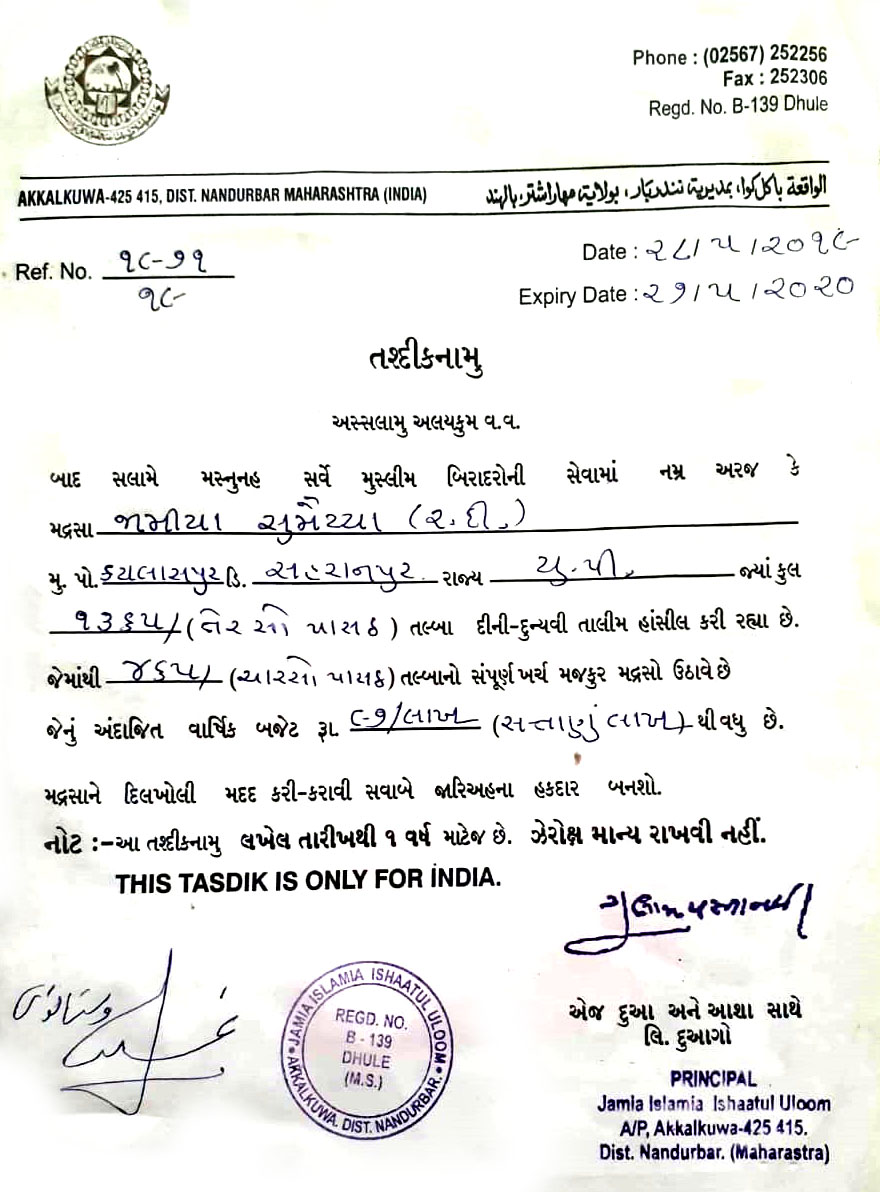 Phone : (02567) 252256
Fax : 252306
Regd. No. B-139 Dhule
AKKALKUWA-425 415, DIST. NANDURBAR MAHARASHTRA (INDIA)
الواقعة باكل كوا، بمديرية نندربار، بولاية مهاراشتر، بالهند
Ref. No. ૧૯-૭૧
૧૯
Date : ૨૮/૫/૨૦૧૯
Expiry Date : ૨૭/૫/૨૦૨૦
તશ્દીકનામુ
અસ્સલામુ અલયકુમ વ.વ.
બાદ સલામે મસ્નુનહ સર્વે મુસ્લીમ બિરાદરોની સેવામાં નમ્ર અરજ કે
મદ્રસા જામીયા સુમૈય્યા (ર.દી.)
મુ. પો. કયલાસપુર ડિ. સહરાનપુર રાજ્ય યુ.પી. જ્યાં કુલ
૧૩૬૫/ (તેરસો પાસઠ) તલ્બા દીની-દુન્યવી તાલીમ હાંસીલ કરી રહ્યા છે.
જેમાંથી ૪૬૫/ (ચારસો પાસઠ) તલ્બાનો સંપૂર્ણ ખર્ચ મજકુર મદ્રસો ઉઠાવે છે
જેનું અંદાજિત વાર્ષિક બજેટ રૂા. ૯૭/લાખ (સત્તાણું લાખ) થી વધુ છે.
મદ્રસાને દિલખોલી મદદ કરી-કરાવી સવાબે જારિઅહના હકદાર બનશો.
નોટ :-આ તશ્દીકનામુ લખેલ તારીખથી ૧ વર્ષ માટેજ છે. ઝેરોક્ષ માન્ય રાખવી નહીં.
THIS TASDIK IS ONLY FOR INDIA.
JAMIA ISLAMIA ISHAATUL ULOOM
REGD. NO.
B - 139
DHULE
(M.S.)
AKKALKUWA. DIST. NANDURBAR.
એજ દુઆ અને આશા સાથે
લિ. દુઆગો
PRINCIPAL
Jamia Islamia Ishaatul Uloom
A/P, Akkalkuwa-425 415.
Dist. Nandurbar. (Maharastra)